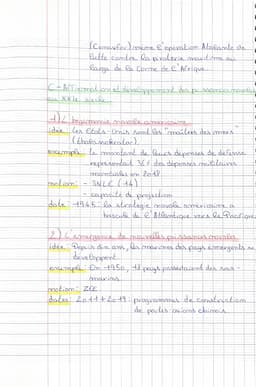 (Comasfor) mène l'opération Atalante de
lutte contre la piraterie maritime au
large de la Corne de l'Afrique.
C - Affirmation et développement des puissances
au XXIe siècle
1) L'hégémonie navale américaine
idée: Les Etats-Unis sont les "maîtres des mers"
exemple: le montant de leurs dépenses de défense
représentait 36% des dépenses militaires
mondiales en 2018
notion: - SNLE (14)
- capacité de projection
date: 1945: la stratégie navale américaine a
basculé de l'Atlantique vers le Pacifique
2) L'émergence de nouvelles puissances navales
idée: Depuis dix ans, les marines des pays émergents se
développent
exemple: En 1950, 4 pays possédaient des sous-
marins
notion: ZEE
dates: 2011 + 2019: programmes de construction
de portes avions chinois